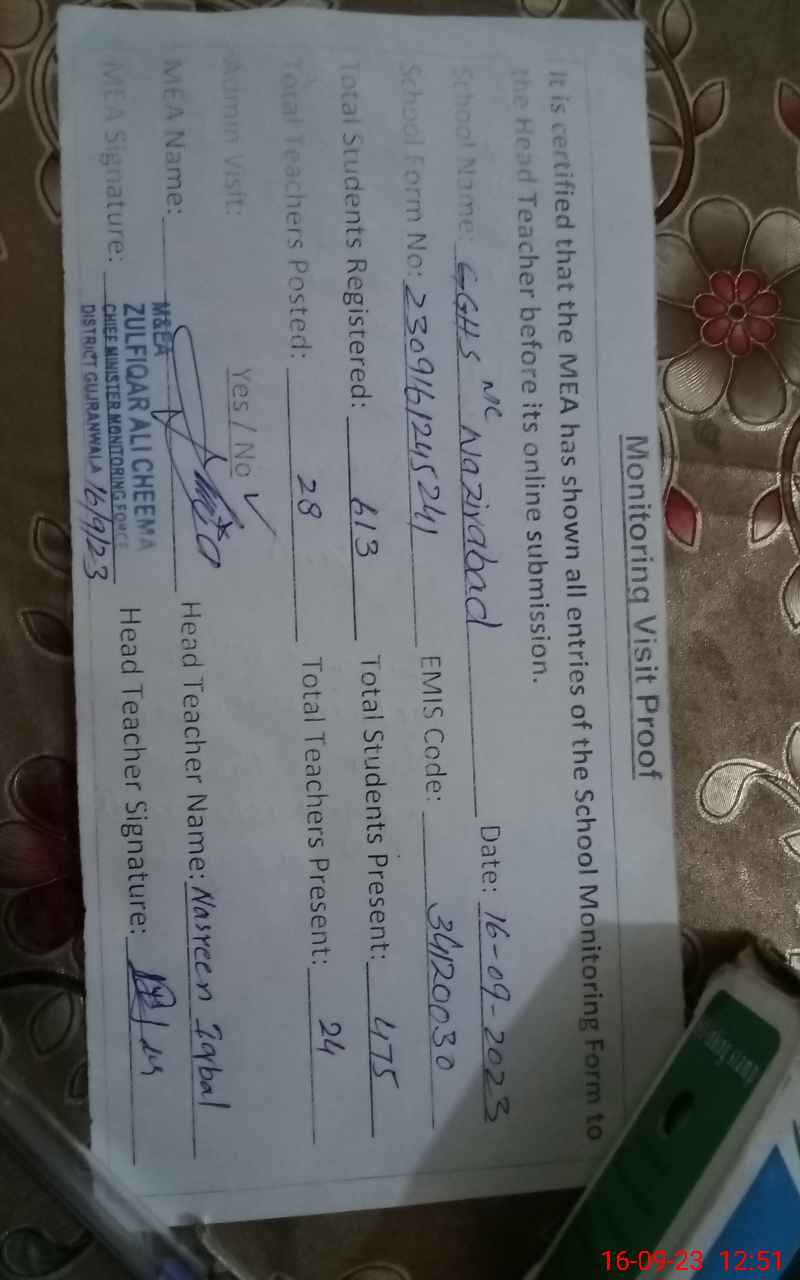 Monitoring Visit Proof
It is certified that the MEA has shown all entries of the School Monitoring Form to
the Head Teacher before its online submission.
School Name: GGHS MC Nazirabad Date: 16-09-2023
School Form No: 2309161245241 EMIS Code: 34120030
Total Students Registered: 613 Total Students Present: 475
Total Teachers Posted: 28 Total Teachers Present: 24
Admin Visit: Yes / No ✓
MEA Name: Head Teacher Name: Nasreen Iqbal
MEA Signature: Head Teacher Signature:
M&EA
ZULFIQAR ALI CHEEMA
CHIEF MINISTER MONITORING FORCE
DISTRICT GUJRANWALA 16/9/23
16-09-23 12:51